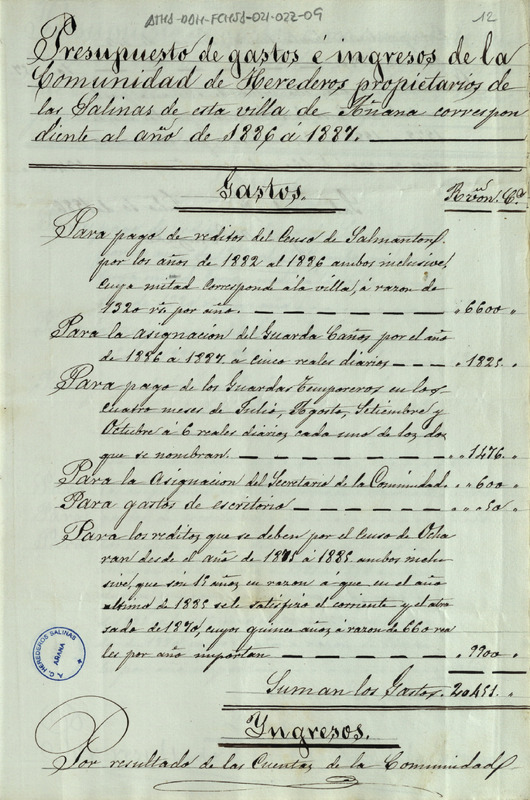 ATHA-DAH-FCHSA-021-022-09
12
Presupuesto de gastos é ingresos de la
Comunidad de Herederos propietarios de
las Salinas de esta villa de Añana correspon
diente al año de 1886 á 1887.
Gastos.
Rs von. Cs
Para pago de reditos del Censo de Salmanton,
por los años de 1882 al 1886 ambos inclusive,
cuya mitad corresponde á la villa, á razon de
1320 rs. por año. 6600
Para la asignacion del Guarda Caños por el año
de 1886 á 1887. á cinco reales diarios 1825
Para pago de los Guardas Temporeros en los
cuatro meses de Julio, Agosto, Setiembre y
Octubre á 6 reales diarios cada uno de los dos
que se nombran. 1476
Para la Asignacion del Secretario de la Comunidad. 600
Para gastos de escritorio 50
Para los reditos que se deben por el Censo de Ocha
ran desde el año de 1871 á 1885 ambos inclu
sive, que són 15 años en razon á que en el año
ultimo de 1885 se le satisfizo el corriente y el atra
sado de 1870, cuyos quince años á razon de 660 rea
les por año importan 9900
Suman los Gastos. 20451
Yngresos.
Por resultado de las Cuentas de la Comunidad
A. C. HEREDEROS SALINAS
AÑANA